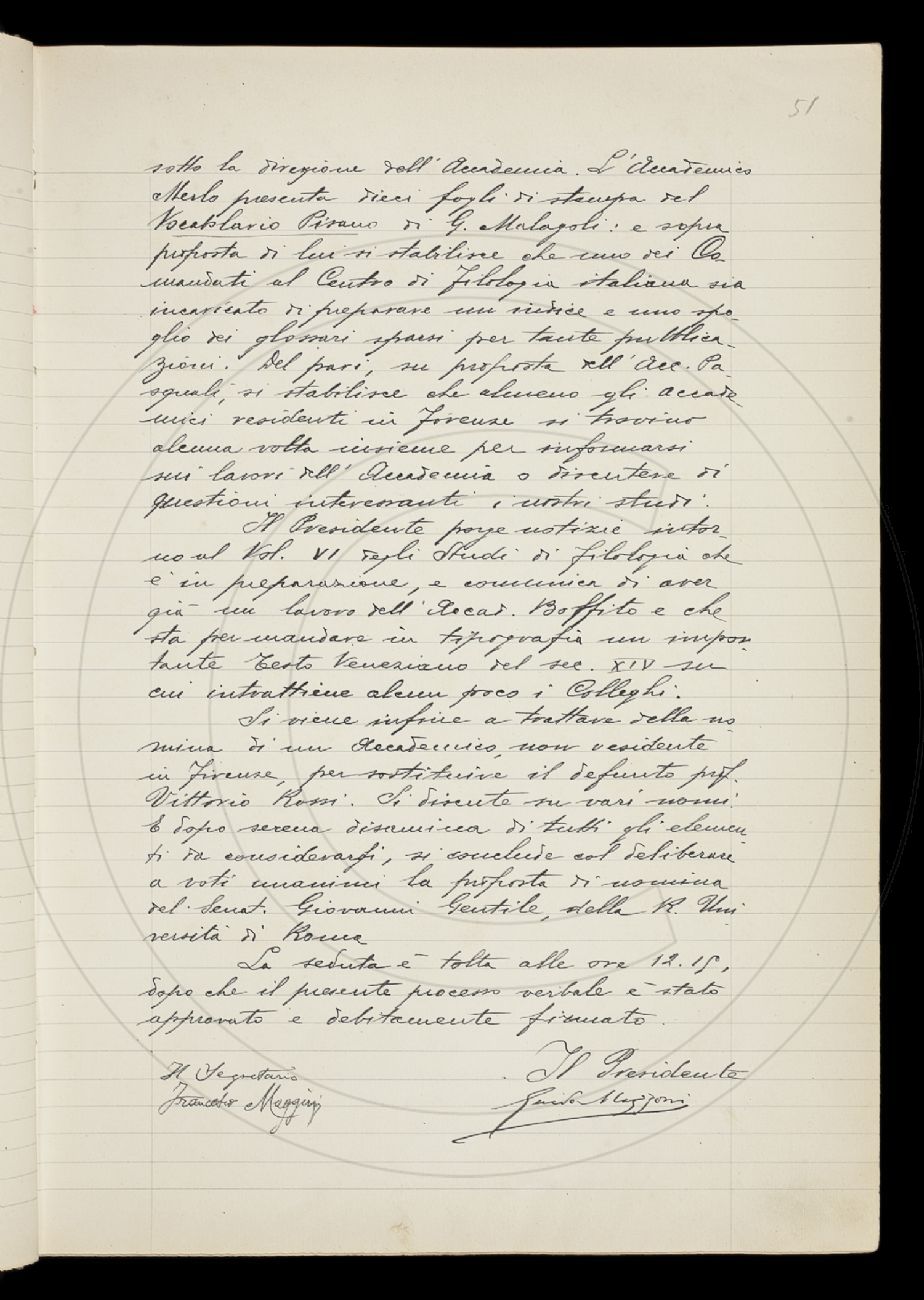 51
sotto la direzione dell' Accademia. L'Accademico
Merlo presenta dieci fogli di stampa del
Vocabolario Pisano di G. Malagoli: e sopra
proposta di lui si stabilisce che uno dei Co-
mandati al Centro di Filologia italiana sia
incaricato di preparare un indice e uno spo-
glio dei glossari sparsi per tante pubblica-
zioni. Del pari, su proposta dell' Acc. Pa-
squali, si stabilisce che almeno gli accade-
mici residenti in Firenze si trovino
alcuna volta insieme per informarsi
sui lavori dell' Accademia o discutere di
questioni interessanti i nostri studi.
Il Presidente porge notizie intor-
no al Vol. VI degli Studi di filologia che
è in preparazione, e comunica di aver
già un lavoro dell' Accad. Boffito e che
sta per mandare in tipografia un impor-
tante Testo Veneziano del sec. XIV su
cui intrattiene alcun poco i Colleghi.
Si viene infine a trattare della no-
mina di un Accademico, non residente
in Firenze, per sostituire il defunto prof.
Vittorio Rossi. Si discute su vari nomi.
E dopo serena disamina di tutti gli elemen-
ti da considerarsi, si conclude col deliberare
a voti unanimi la proposta di nomina
del Senat. Giovanni Gentile, della R. Uni-
versità di Roma
La seduta è tolta alle ore 12.15,
dopo che il presente processo verbale è stato
approvato e debitamente firmato.
Il Segretario
Francesco Maggini
Il Presidente
Guido Mazzoni